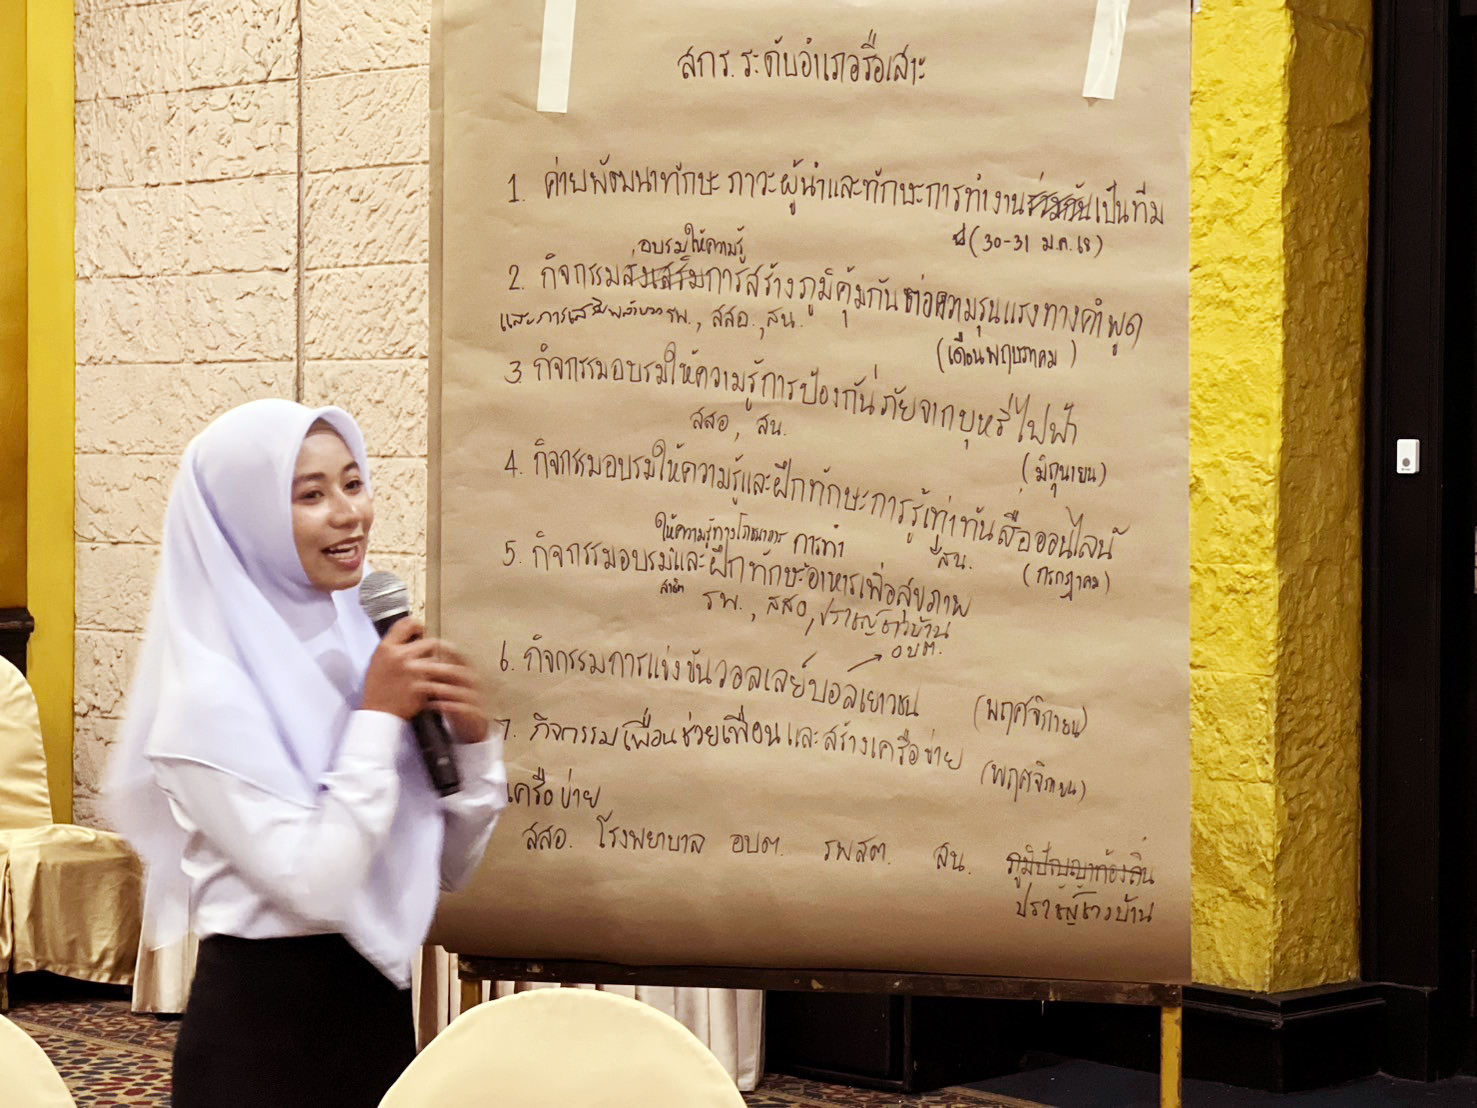 สกร. ระดับอำเภอรือเสาะ
1. ค่ายพัฒนาทักษะ ภาวะผู้นำและทักษะการทำงานร่วมกันเป็นทีม
(30-31 ม.ค. 68)
อบรมให้ความรู้
2. กิจกรรมส่งเสริมการสร้างภูมิคุ้มกันต่อความรุนแรงทางคำพูด
และการเสริมพลังบวก รพ., สสอ., สน.
(เดือนพฤษภาคม)
3. กิจกรรมอบรมให้ความรู้การป้องกันภัยจากบุหรี่ไฟฟ้า
สสอ, สน.
(มิถุนายน)
4. กิจกรรมอบรมให้ความรู้และฝึกทักษะการรู้เท่าทันสื่อออนไลน์
สน.
(กรกฎาคม)
ให้ความรู้ทางโภชนาการ การทำ
5. กิจกรรมอบรมและฝึกทักษะอาหารเพื่อสุขภาพ
สาธิต รพ., สสอ, ปราชญ์ชาวบ้าน
อบต.
6. กิจกรรมการแข่งขันวอลเลย์บอลเยาวชน (พฤศจิกายน)
7. กิจกรรมเพื่อนช่วยเพื่อนและสร้างเครือข่าย (พฤศจิกายน)
เครือข่าย
สสอ. โรงพยาบาล อบต. รพสต. สน. ภูมิปัญญาท้องถิ่น
ปราชญ์ชาวบ้าน